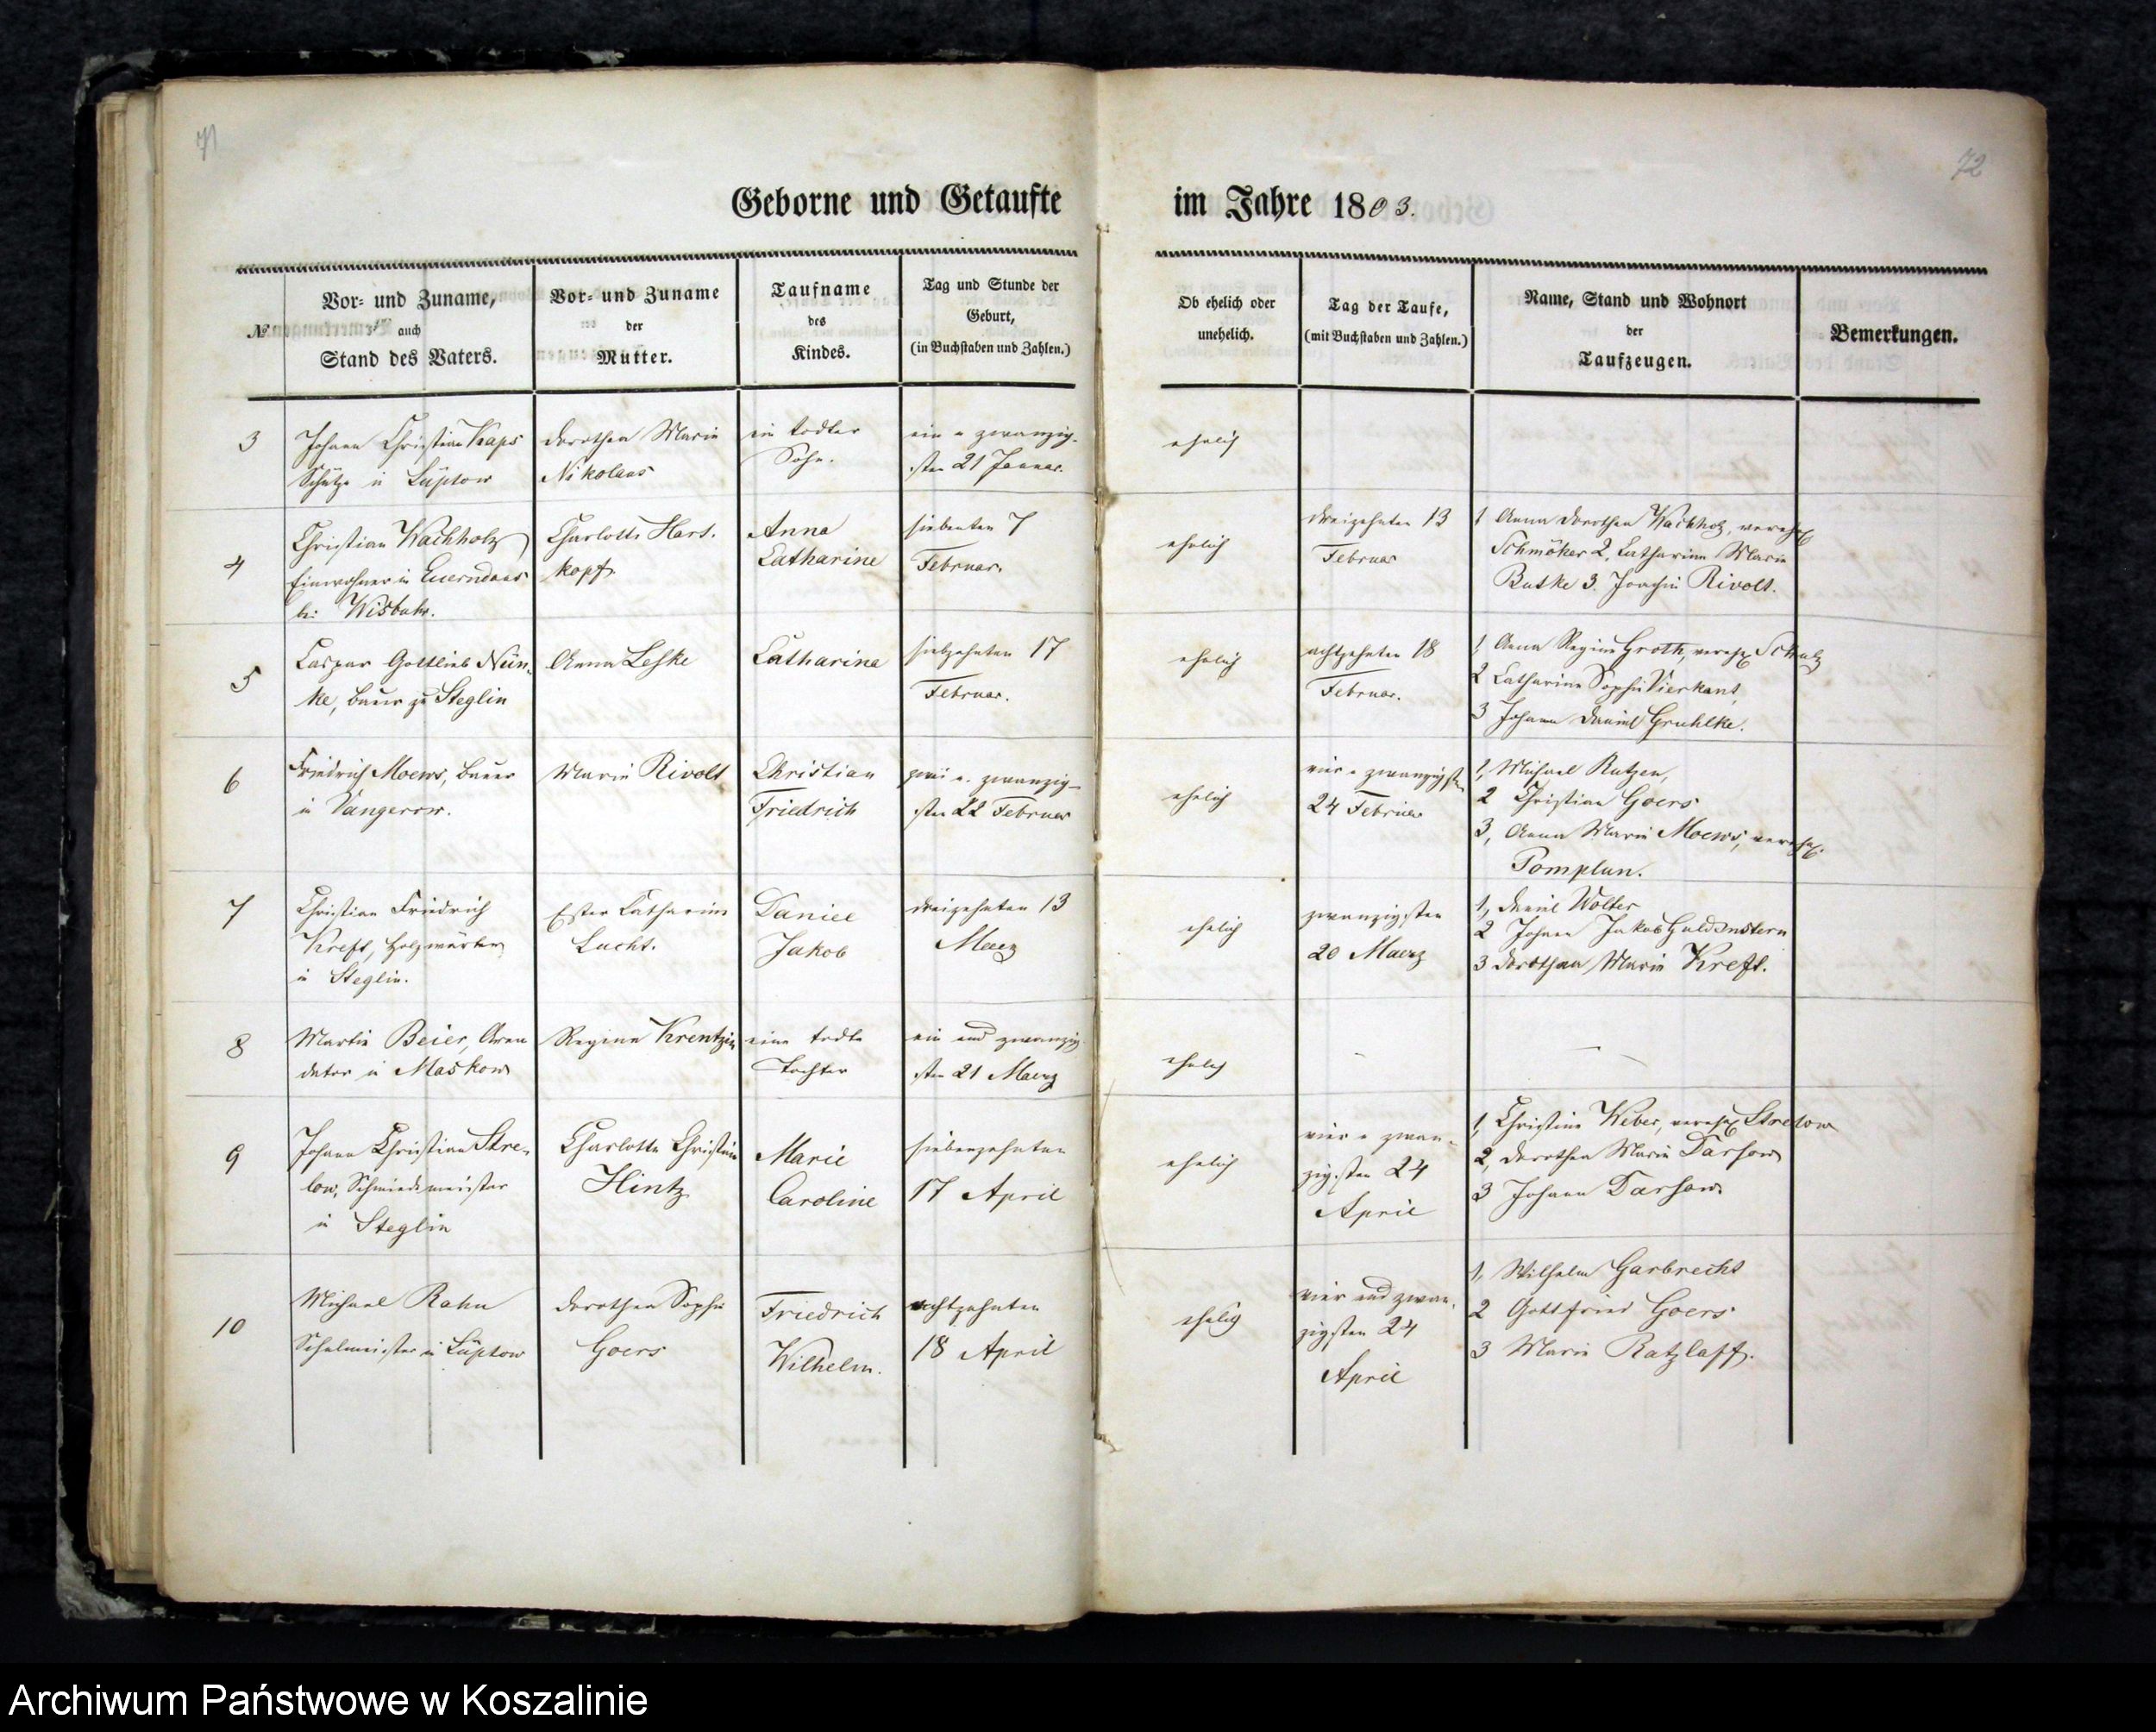 71
72
Geborne und Getaufte im Jahre 1803.
№
Vor- und Zuname,
auch
Stand des Vaters.
Vor- und Zuname
der
Mutter.
Taufname
des
Kindes.
Tag und Stunde der
Geburt,
(in Buchstaben und Zahlen.)
Ob ehelich oder
unehelich.
Tag der Taufe,
(mit Buchstaben und Zahlen.)
Name, Stand und Wohnort
der
Taufzeugen.
Bemerkungen.
3
Johann Christian Kaps
Schütze in Lüptow
Dorothea Marie
Nikolaus
ein todter
Sohn.
ein u zwanzig-
sten 21 Januar.
ehelich
4
Christian Wachholz
Einwohner in
bei Wisbuhr.
Charlotte Hart-
kopf
Anna
Catharine
siebenten 7
Februar.
ehelich
dreizehnten 13
Februar
1 Anna Dorothea Wachholz, verehel
Schmöker 2, Catharine Marie
Butke 3. Joachim Rivolt.
5
Caspar Gottlieb Nün-
ke, Bauer zu Steglin
Anna Leske
Catharina
siebzehnten 17
Februar.
ehelich
achtzehnten 18
Februar.
1, Anna Regine Groth, verehel Schulz
2 Catharine Sophie Vierkant,
3 Johann Daniel Gruhlke.
6
Friedrich Moews, Bauer
in Vangerow.
Marie Rivolt
Christian
Friedrich
zwei u. zwanzig-
sten 22 Februar
ehelich
vier u zwanzigsten
24 Februar
1, Michael Rutzen,
2 Christian Goers
3, Anna Marie Moews, verehel.
Pomplun.
7
Christian Friedrich
Kreft, Holzwärter
in Steglin.
Ester Catharine
Lucht.
Daniel
Jakob
dreizehnten 13
Maerz
ehelich
zwanzigsten
20 Maerz
1, Daniel Wolter
2 Johann Jakob Guldenstern
3 Dorothea Marie Kreft.
8
Martin Beier, Aren
dator in Maskow
Regine Krentzin
eine todte
Tochter
ein und zwanzig
sten 21 Maerz
ehelich
9
Johann Christian Stre-
low, Schmiedemeister
in Steglin
Charlotte Christine
Hintz
Marie
Caroline
siebenzehnten
17 April
ehelich
vier u zwan-
zigsten 24
April
1, Christine Weber, verehel Strelow
2, Dorothea Marie Darsow
3 Johann Darsow
10
Michael Rahn
Schulmeister in Lüptow
Dorothea Sophie
Goers
Friedrich
Wilhelm.
achtzehnten
18 April
ehelich
vier und zwan-
zigsten 24
April
1, Wilhelm Garbrecht
2 Gottfried Goers
3 Marie Ratzlaff.
Archiwum Państwowe w Koszalinie